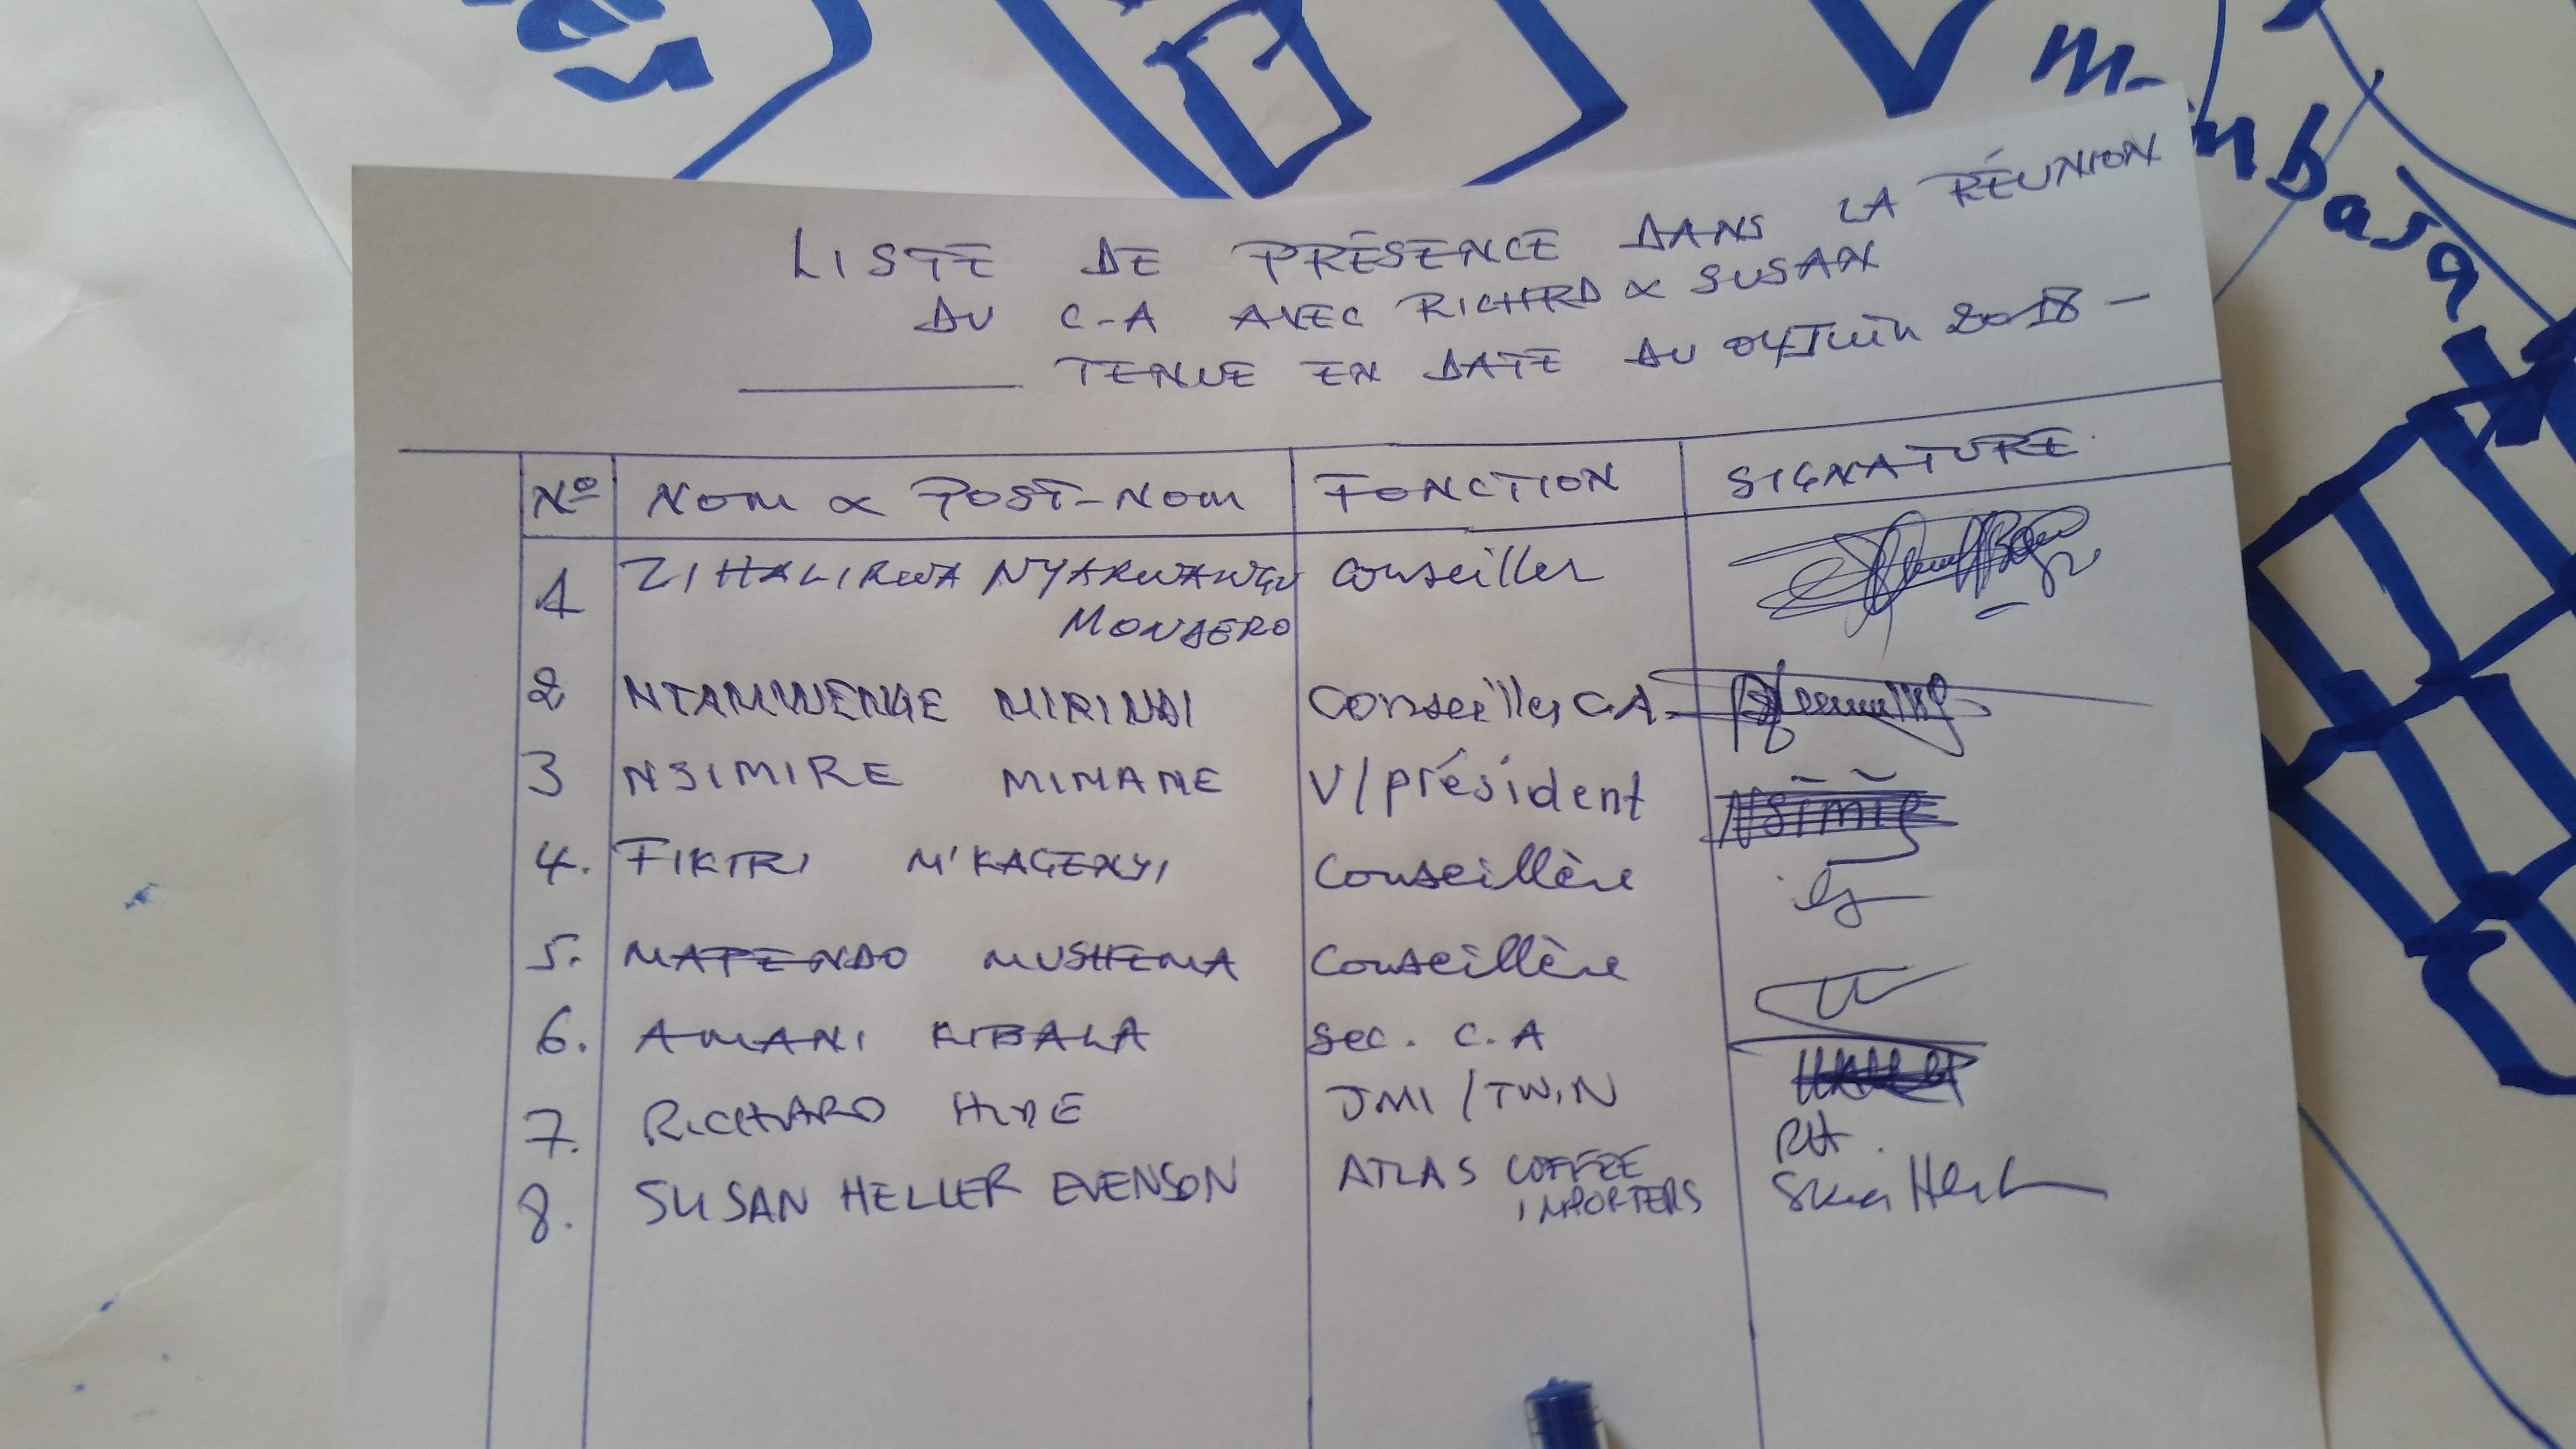 Mombasa
LISTE DE PRÉSENCE DANS LA RÉUNION
DU C-A AVEC RICHRD & SUSAN
TENUE EN DATE DU 04 Juin 2018 -
Nº NOM & POST-NOM FONCTION SIGNATURE
1 ZIHALIRWA NYARWANGU conseiller
MONDERO
2 NTAMWENGE MIRINDI Conseiller C.A
3 NSIMIRE MIMANE V/président Nsimir
4. FIKIRI M'KAGENYI Conseillère
5. MAPENDO MUSHEMA Conseillère
6. AMANI KIBALA Sec. C.A
7. RICHARD HIDE JMI / TWIN RH.
8. SUSAN HELLER EVENSON ATLAS COFFEE
IMPORTERS